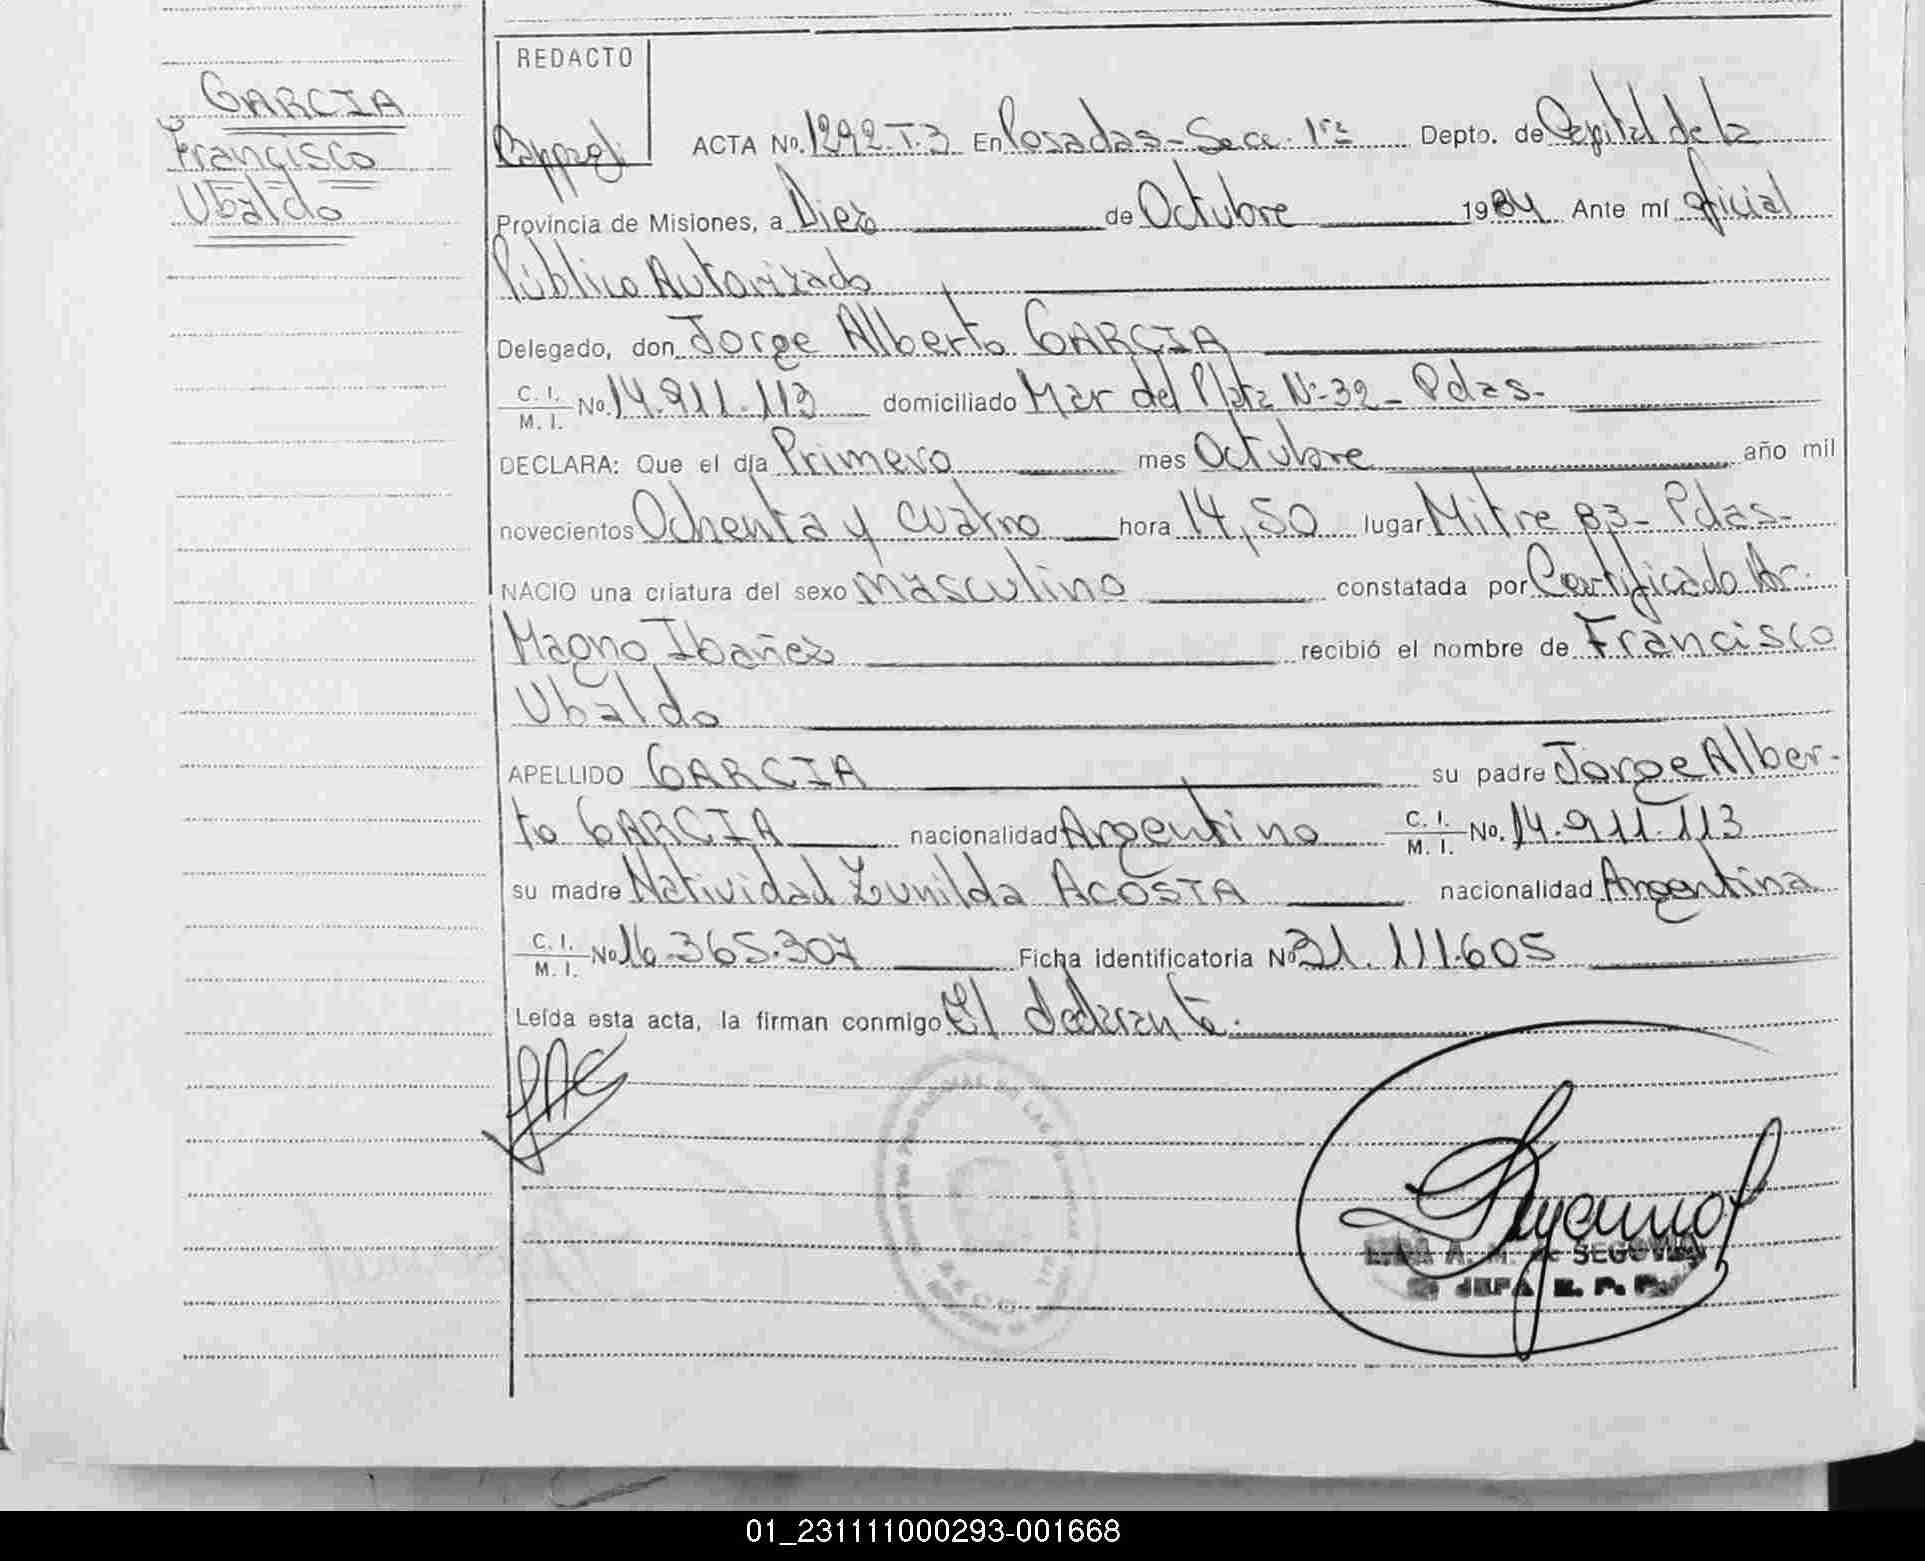 GARCIA
Francisco
Ubaldo
REDACTO
ACTA No. 1292-T.3 En Posadas-Secc. 1ra Depto. de Capital de la
Provincia de Misiones, a Diez de Octubre 1984 Ante mí oficial
Público Autorizado
Delegado, don Jorge Alberto GARCIA
C. I.
M. I. No. 14.911.113 domiciliado Mar del Plata Nº 32 - Pdas-
DECLARA: Que el día Primero mes Octubre año mil
novecientos Ochenta y cuatro hora 14,50 lugar Mitre 83- Pdas-
NACIO una criatura del sexo masculino constatada por Certificado
Magno Ibañez recibió el nombre de Francisco
Ubaldo
APELLIDO GARCIA su padre Jorge Alber-
to GARCIA nacionalidad Argentino C. I.
M. I. No. 14.911.113
su madre Natividad Zunilda ACOSTA nacionalidad Argentina
C. I.
M. I. No 16.365.307 Ficha identificatoria Nº 31.111.605
Leída esta acta, la firman conmigo El declarante.
A. M. de SEGOVIA
JEFA
01_231111000293-001668